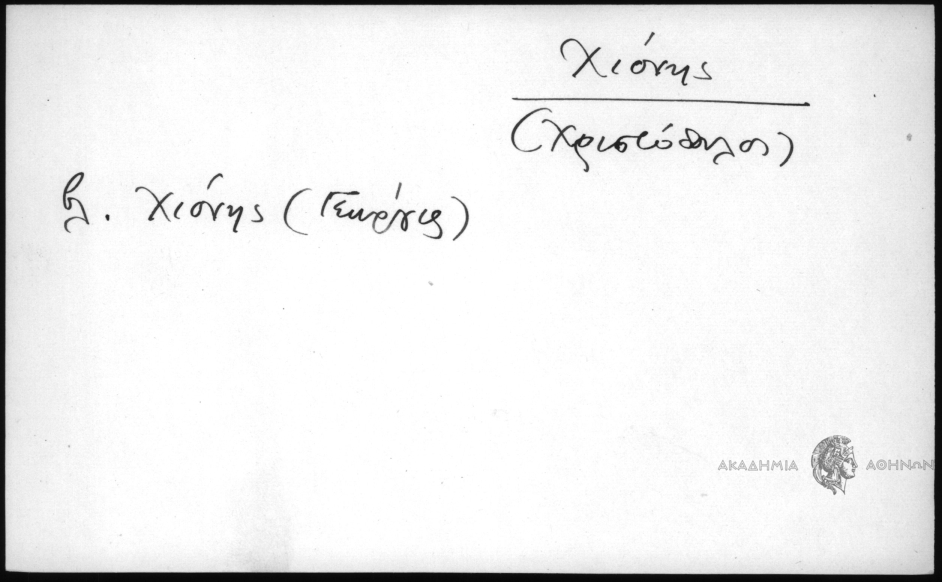 Χιόνης
(Χριστόδουλος)
βλ. Χιόνης (Γεώργιος)
ΑΚΑΔΗΜΙΑ ΑΘΗΝΩΝ